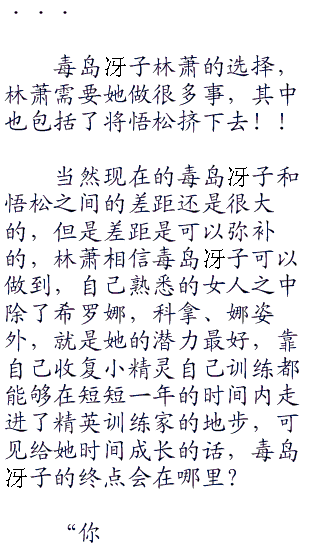 . . .
毒岛冴子林萧的选择，
林萧需要她做很多事，其中
也包括了将悟松挤下去！！
当然现在的毒岛冴子和
悟松之间的差距还是很大
的，但是差距是可以弥补
的，林萧相信毒岛冴子可以
做到，自己熟悉的女人之中
除了希罗娜，科拿、娜姿
外，就是她的潜力最好，靠
自己收复小精灵自己训练都
能够在短短一年的时间内走
进了精英训练家的地步，可
见给她时间成长的话，毒岛
冴子的终点会在哪里？
“你